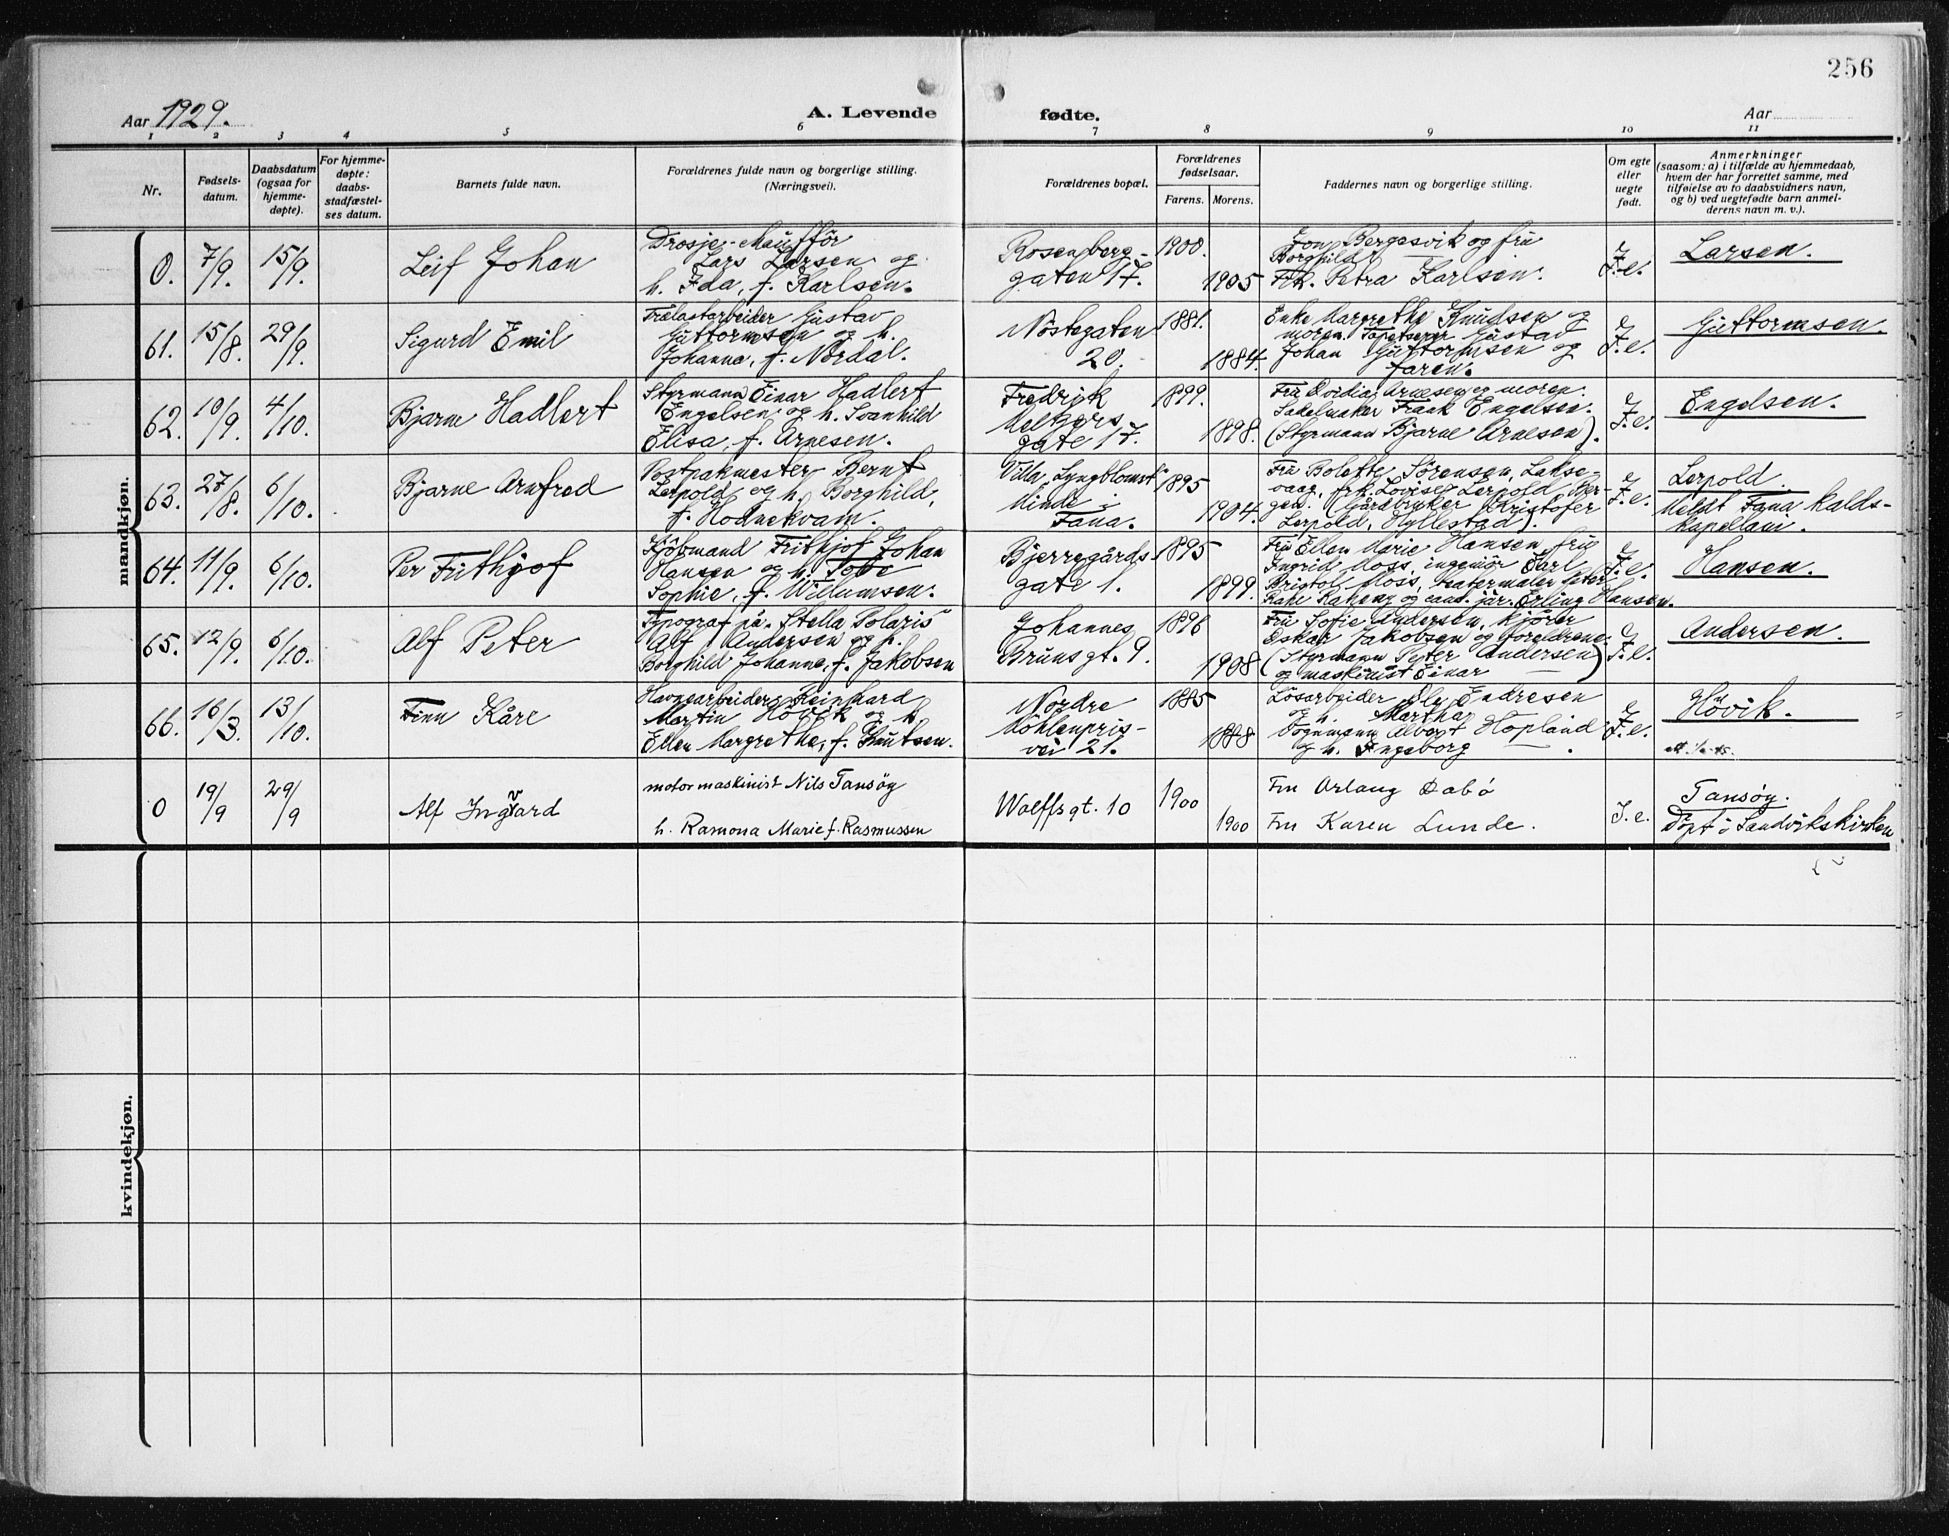 256
Aar 1929.
A. Levende fødte.
Aar
1 2 3 4 5 6 7 8 9 10 11
Nr.
Fødsels-
datum.
Daabsdatum
(ogsaa for
hjemme-
døpte).
For hjemme-
døpte:
daabs-
stadfæstel-
ses datum.
Barnets fulde navn.
Forældrenes fulde navn og borgerlige stilling.
(Næringsvei).
Forældrenes bopæl.
Forældrenes
fødselsaar.
Farens. Morens.
Faddernes navn og borgerlige stilling.
Om egte
eller
uegte
født.
Anmerkninger
(saasom: a) i tilfælde av hjemmedaab,
hvem der har forrettet samme, med
tilføielse av to daabsvidners navn,
og b) ved uegtefødte barn anmel-
derens navn m. v.).
mandkjøn.
0. 7/9. 15/9.
Leif Johan
Drosje-chauffør
Lars Larsen og
h. Ida, f. Karlsen.
Rosenberg-
gaten 17.
1900.
1905
Jon Bergesvik og fru
Borghild
Frk. Petra Karlsen.
I.e.
Larsen.
61. 15/8. 29/9.
Sigurd Emil
Trælastarbeider Gustav
Guttormsen og h.
Johanna, f. Nordal.
Nøstegaten
20.
1881.
1884.
Enke Margrethe Knudsen og
moren. Tapetserer Gustav
Johan Guttormsen og
faren.
I.e.
Guttormsen.
62. 10/9. 4/10.
Bjarne Hadlert
Styrmann Einar Hadlert
Engelsen og h. Svanhild
Elisa, f. Arnesen.
Fredrik
Meltzers
gate 17.
1899.
1898.
Fru Ovidia Arnesen og moren.
Sakelmaker Frank Engelsen.
(Styrmann Bjarne Arnesen).
I.e.
Engelsen.
63. 27/8. 6/10.
Bjarne Arnfred
Postpakmester Bernt
Lerpold og h. Borghild,
f. Hodnekvam.
Villa "Lyngblomst"
Minde i
Fana.
1895
1904.
Fru Bolette Sørensen, Lakse-
vaag, frk. Lovise Lerpold Ber-
gen. (Gårdbruker Kristofer
Lerpold, Hyllestad).
I.e.
Lerpold.
Meldt Fana kalds-
kapellani.
64. 11/9. 6/10.
Per Frithjof
Kjøbmand Frithjof Johan
Hansen og h. Tove
Sophie, f. Willumsen.
Bjerregårds
gate 1.
1895
1899.
Fru Ellen Marie Hansen, fru
Ingrid Moss, ingeniør Carl
Kristol Moss, teatermaler Peter
og cand. jur. Erling Hansen.
I.e.
Hansen.
65. 12/9. 6/10.
Alf Peter
Typograf på "Stella Polaris"
Alf Andersen og h.
Borghild Johanne, f. Jakobsen
Johannes
Brunsgt. 9.
1896
1908
Fru Sofie Andersen, kjører
Oskar Jakobsen og foreldrene.
(Styrmann Peter Andersen)
og maskinist Einar
I.e.
Andersen.
66. 16/3. 13/10.
Finn Kåre
Havnearbeider Reinhard
Martin Høvik og h.
Ellen Margrethe, f. Knutsen.
Nordre
Møhlenpris-
vei 21.
1885
1888
Løsarbeider Ole Endresen
og h. Martha
Vognmann Albert Hopland
og h. Ingeborg
I.e.
Høvik.
0 19/9 29/9
Alf Ingvard
motormaskinist Nils Tansøy
h. Ramona Marie f. Rasmussen
Wolffsgt. 10
1900
1900
Fru Arlaug Dabø
Fru Karen Lunde.
I.e.
Tansøy.
Døpt i Sandvikskirken
kvindekjøn.